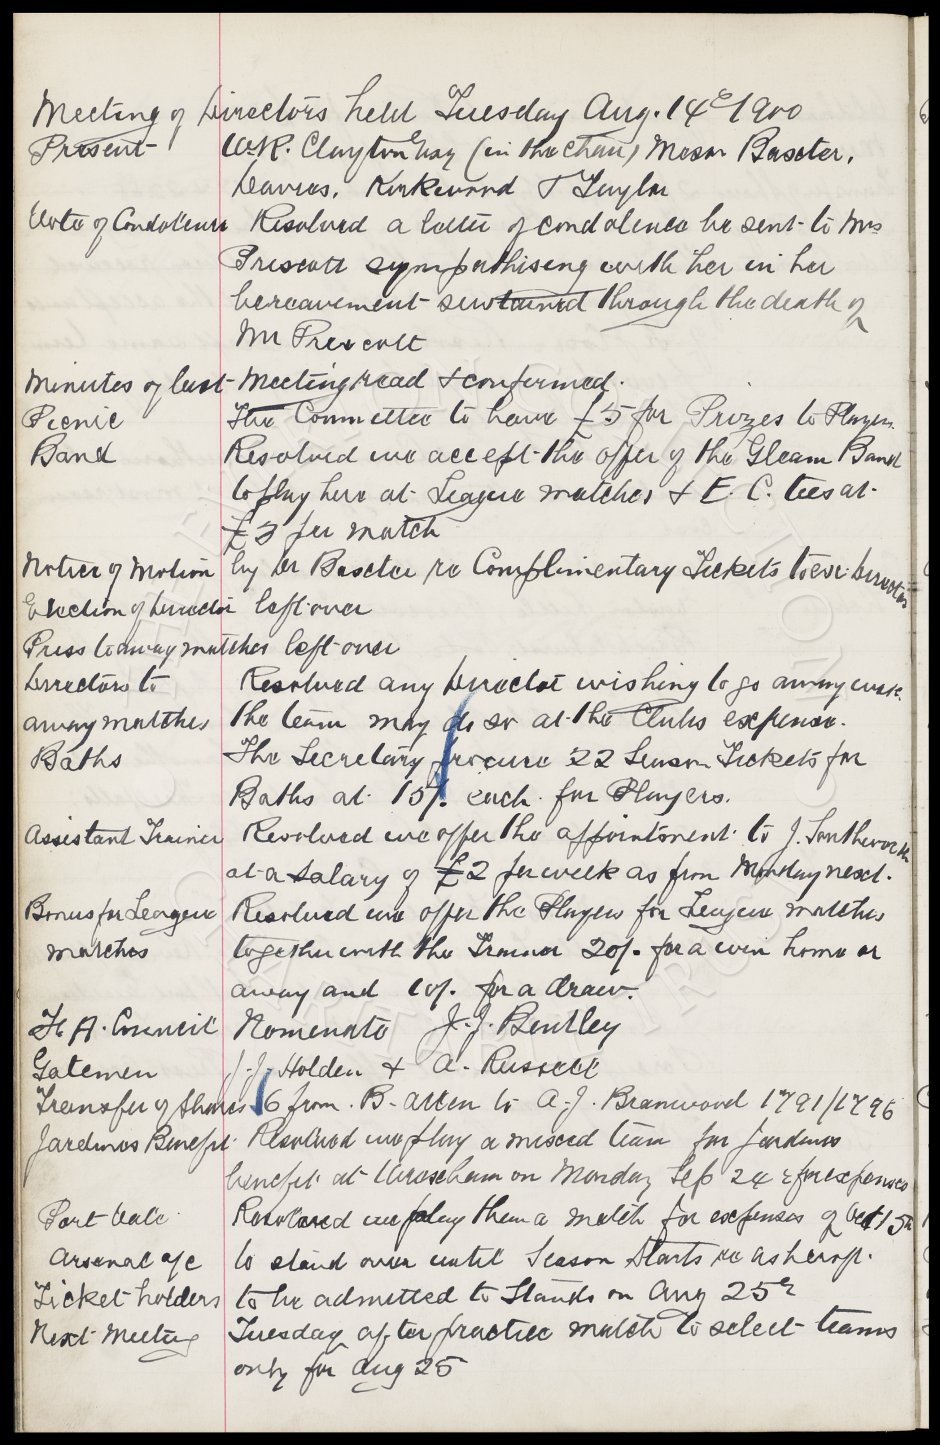 Meeting of Directors held Tuesday Aug. 14th 1900
Present W.R. Clayton Esq (in the chair) Messrs Baxter,
Davies, Kirkwood & Taylor
Vote of Condolence Resolved a letter of condolence be sent to Mrs
Prescott sympathising with her in her
bereavement sustained through the death of
Mr Prescott
Minutes of last Meeting read & confirmed.
Picnic The Committee to have £5 for Prizes to Players.
Band Resolved we accept the offer of the Gleam Band
to play here at League matches & E. C. ties at
£3 per match
Notice of Motion by Dr Baxter re Complimentary Tickets to ex-Directors
Election of Director left over
Press to away matches left over
Directors to Resolved any Director wishing to go away with
away matches the team may do so at the Clubs expense.
Baths The Secretary procure 22 Season Tickets for
Baths at 15/- each for Players.
Assistant Trainer Resolved we offer the appointment to J. Southworth
at a salary of £2 per week as from Monday next.
Bonus for League Resolved we offer the Players for League matches
matches together with the Trainer 20/- for a win home or
away and 10/- for a draw.
F. A. Council Nominate J.J. Bentley
Gatemen J.J. Holden & A. Russell
Transfer of Shares 6 from B. Allen to A.J. Bramwood 1791/1796
Jardines Benefit Resolved we play a mixed team for Jardines
benefit at Wrexham on Monday Sep 24th for expenses
Port Vale Resolved we play them a match for expenses of Oct 15th
Arsenal a/c to stand over until Season starts re Ashcroft.
Ticket holders to be admitted to Stands on Aug 25th
Next Meeting Tuesday after practice match to select teams
only for Aug 25